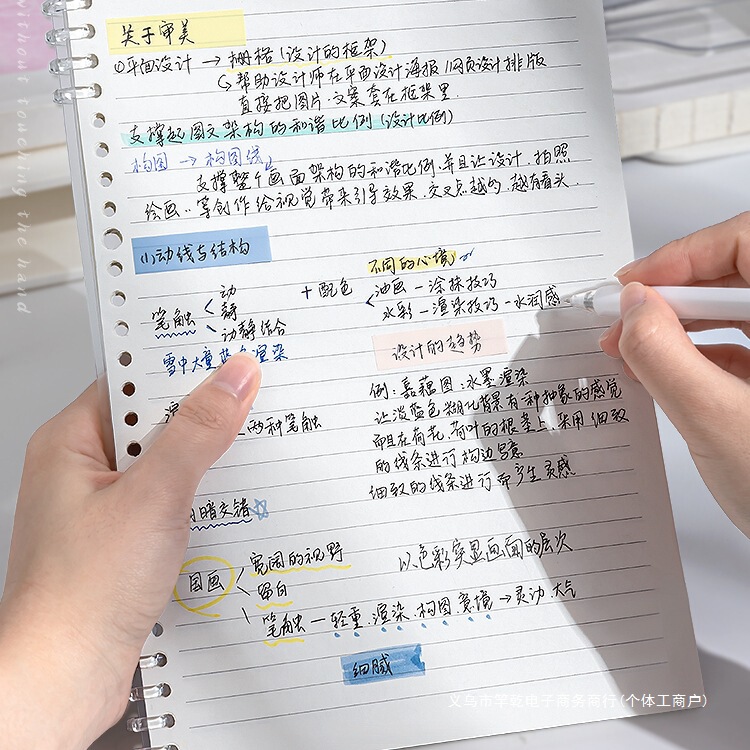 without touching the hand
关于审美
①平面设计 → 栅格(设计的框架)
↳ 帮助设计师在平面设计海报、网页设计排版
直接把图片、文案套在框架里
支撑起图文架构的和谐比例(设计比例)
构图 → 构图线
支撑整个画面架构的和谐比例,并且让设计、拍照
绘画..等创作给视觉带来引导效果,交叉点越多,越有看头.
(1)动线与结构
不同的心境
笔触 < 动
静
动静结合
+ 配色
油画 — 涂抹技巧
水彩 — 渲染技巧 - 水润感
设计的趋势
雪中大量蓝色渲染
两种笔触
例:嘉藕图:水墨渲染
让淡蓝色糊化背景有一种抽象的感觉
而且在荷花、荷叶的根茎上,采用细致
的线条进行构边写意
细致的线条进行而产生灵感
暗交错☆
国画 < 宽阔的视野
留白
笔触 — 轻重、渲染、构图、意境 → 灵动、大气
以色彩突显画面的层次
细腻
义乌市芊乾电子商务商行(个体工商户)